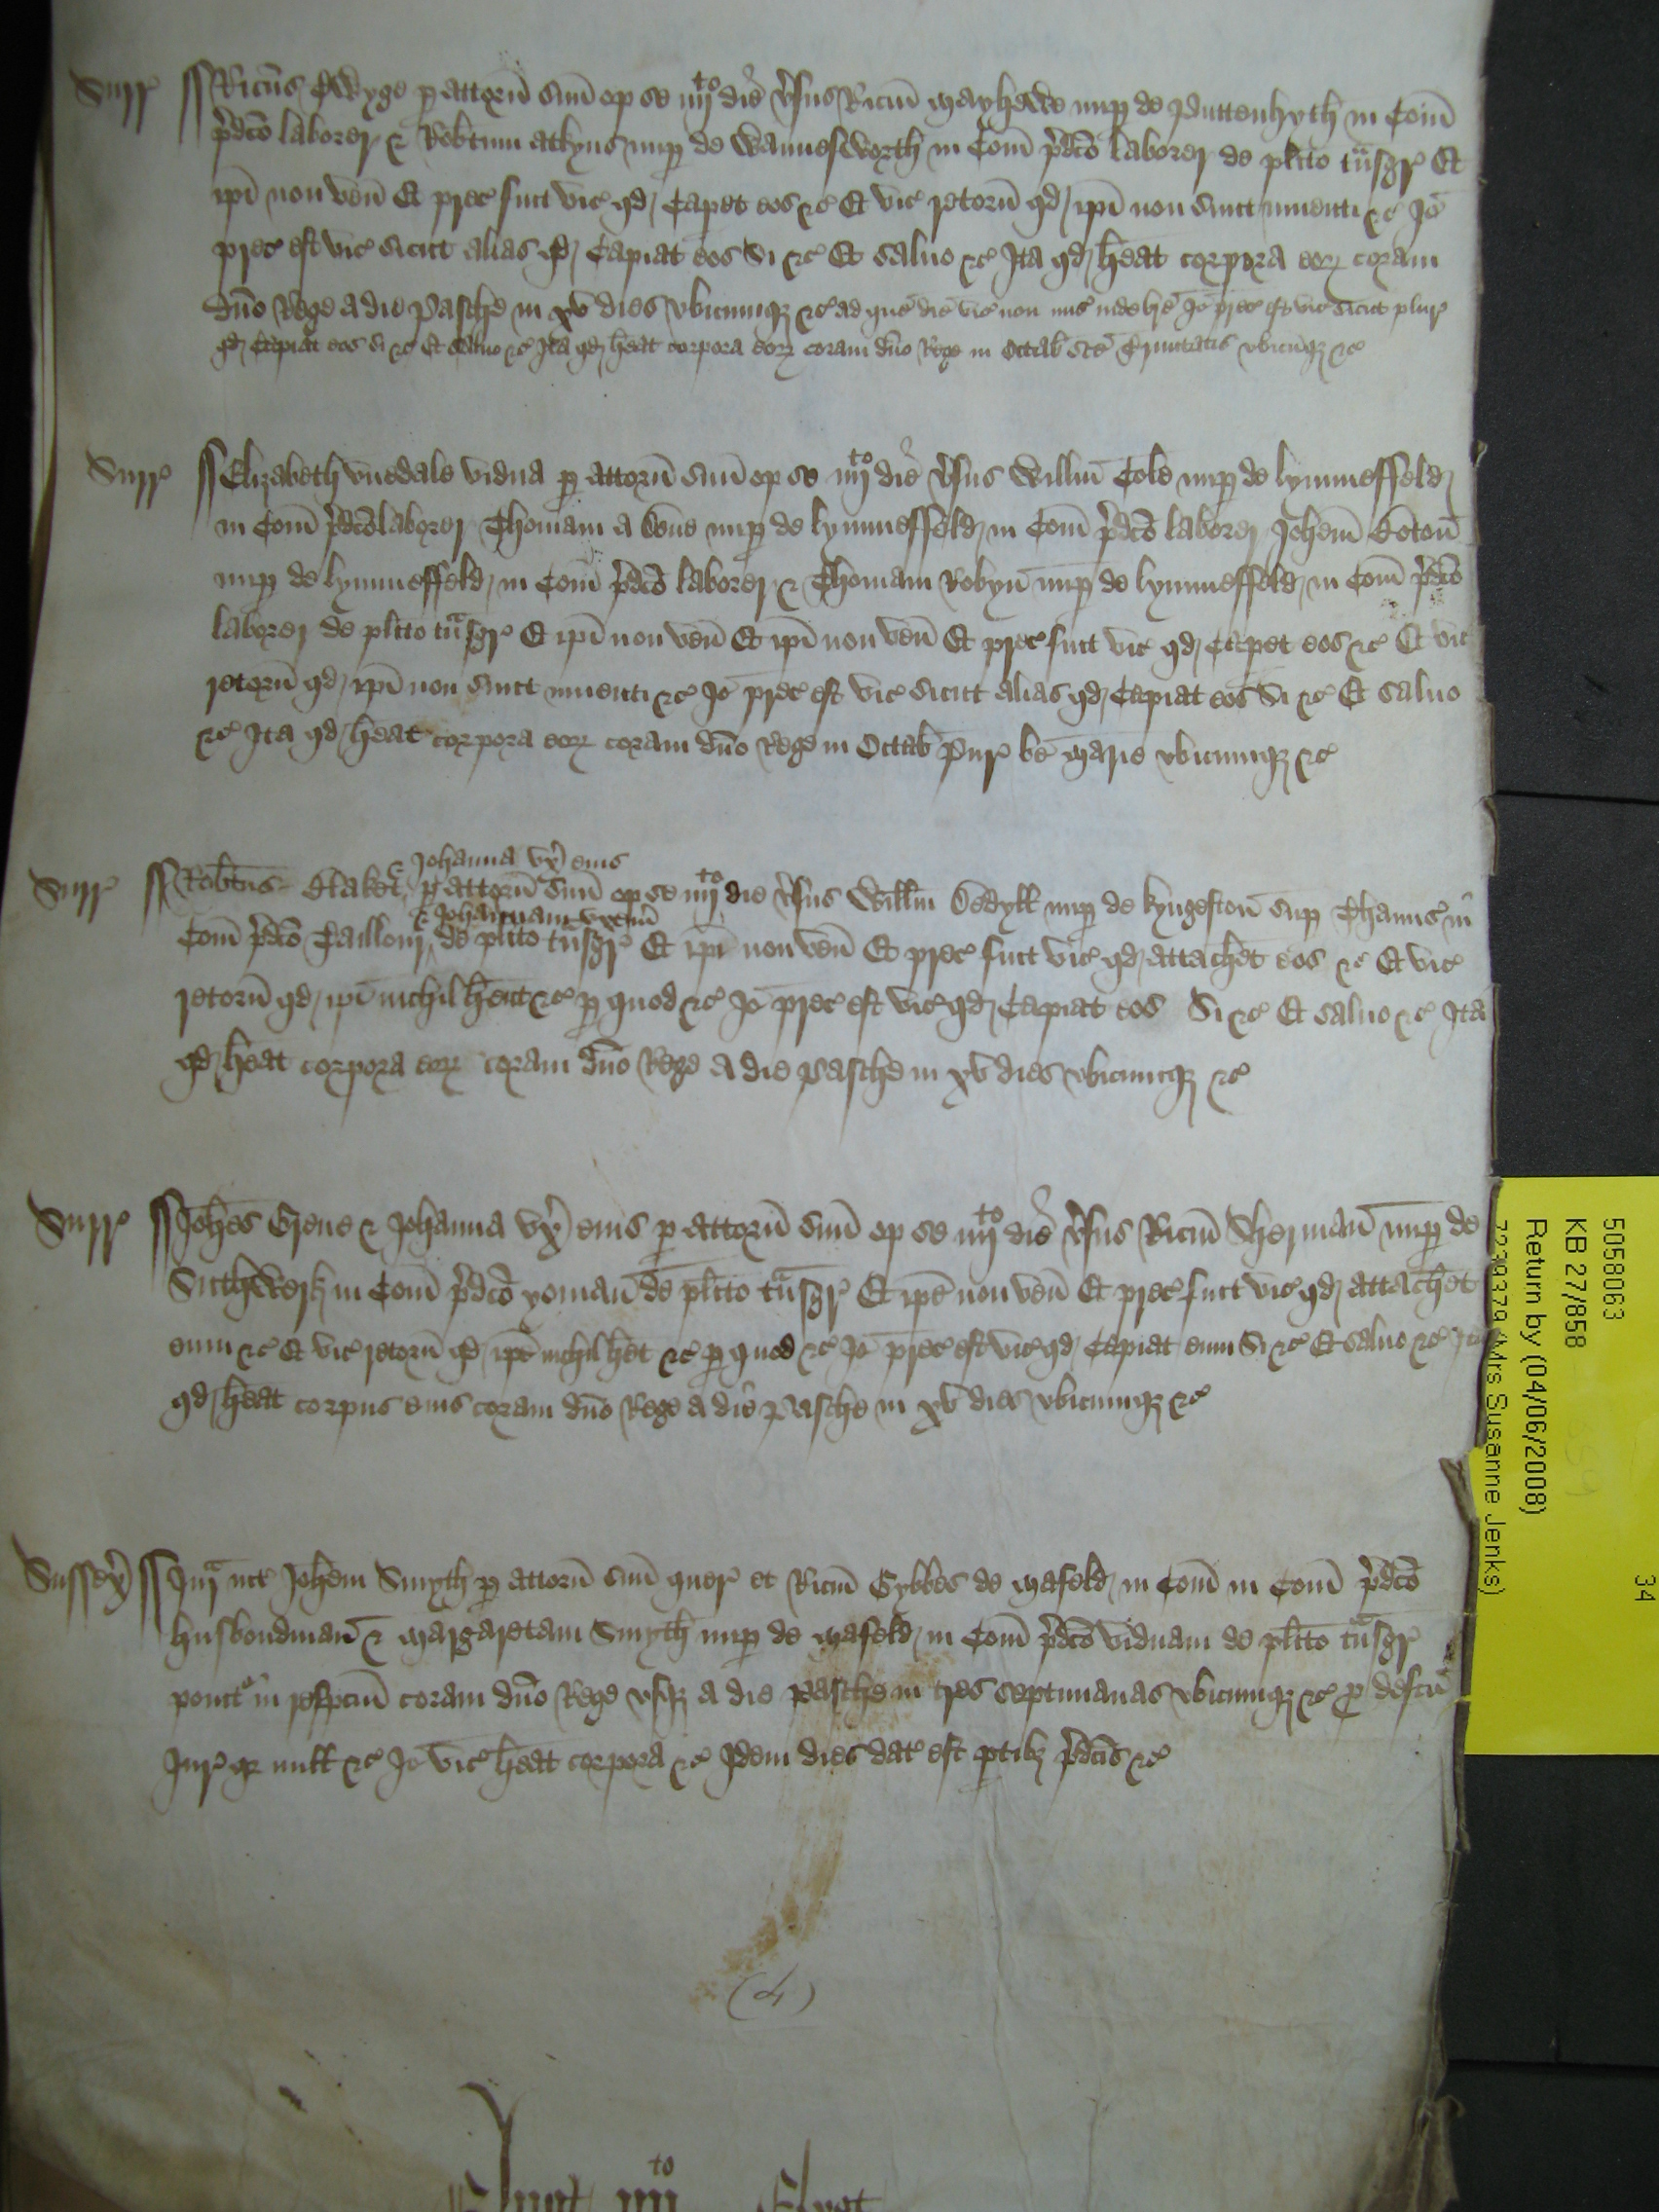 Surr Ricus Wyge p attorn suu op se iiijto die vsus Ricm Mayhewe nup de Puttenhyth in Com
pdco laborer & Robtum Atkyns nup de Wannesworth in Com pdco laborer de plito tnsgr Et
ipi non ven Et prec fuit vic qd Capet eos &c Et vic retorn qd ipi non sunt inuenti &c Io
prec est vic sicut alias qd Capiat eos Si &c Et saluo &c Ita qd heat corpora eor coram
dno Rege a die Pasche in xv dies vbicumq &c ad que die vic non mis inde bre Io prec est vic sicut plur
qd Capiat eos si &c Et saluo &c Ita qd heat corpora eor coram dno Rege in Octab sce Trinitatis vbicuq &c
Surr Elizabeth Vuedale vidua p attorn suu op se iiijto die vsus Willm Cole nup de lymnesfeld
in Com pdco laborer Thomam a nup de lymnesfeld in Com pdco laborer Johem
nup de lymnesfeld in Com pdco laborer & Thomam Robyn nup de lymnesfeld in Com pdco
laborer de plito tnsgr Et ipi non ven Et ipi non ven Et prec fuit vic qd Capet eos &c Et vic
retorn qd ipi non sunt inuenti &c Io prec est vic sicut alias qd Capiat eos Si &c Et saluo
&c Ita qd heat corpora eor coram dno Rege in Octab Pur be Marie vbicumq &c
& Johanna vx eius
Surr Robtus p attorn suu op se iiijto die vsus Willm nup de kyngeston sup Thamis in
& Johannam vxem
Com pdco Taillour de plito tnsgr Et ipi non ven Et prec fuit vic qd attachet eos &c Et vic
retorn qd ipi nichil hent &c p quod &c Io prec est vic qd Capiat eos Si &c Et saluo &c Ita
qd heat corpora eor coram dno Rege a die Pasche in xv dies vbicumq &c
Surr Johes Grene & Johanna vx eius p attorn suu op se iiijto die vsus Ricm Sherman nup de
Suthwerk in Com pdco yoman de plito tnsgr Et ipe non ven Et prec fuit vic qd attachet
eum &c Et vic retorn qd ipe nichil het &c p quod &c Io prec est vic qd Capiat eum Si &c Et saluo &c Ita
qd heat corpus eius coram dno Rege a die Pasche in xv dies vbicumq &c
Sussex Jur int Johem Smyth p attorn suu quer et Ricm Gybbes de Mafeld in Com in Com pdco
husbondman & Margaretam Smyth nup de Mafeld in Com pdco viduam de plito tnsgr
ponit in respcm coram dno Rege vsq a die Pasche in tres septimanas vbicumq &c p defcu
Jur qr null &c Io vic heat corpora &c Idem dies dat est ptibz pdcis &c
(d)
iiijto
34
5058063
KB 27/858
Return by (04/06/2008)
Mrs Susanne Jenks)